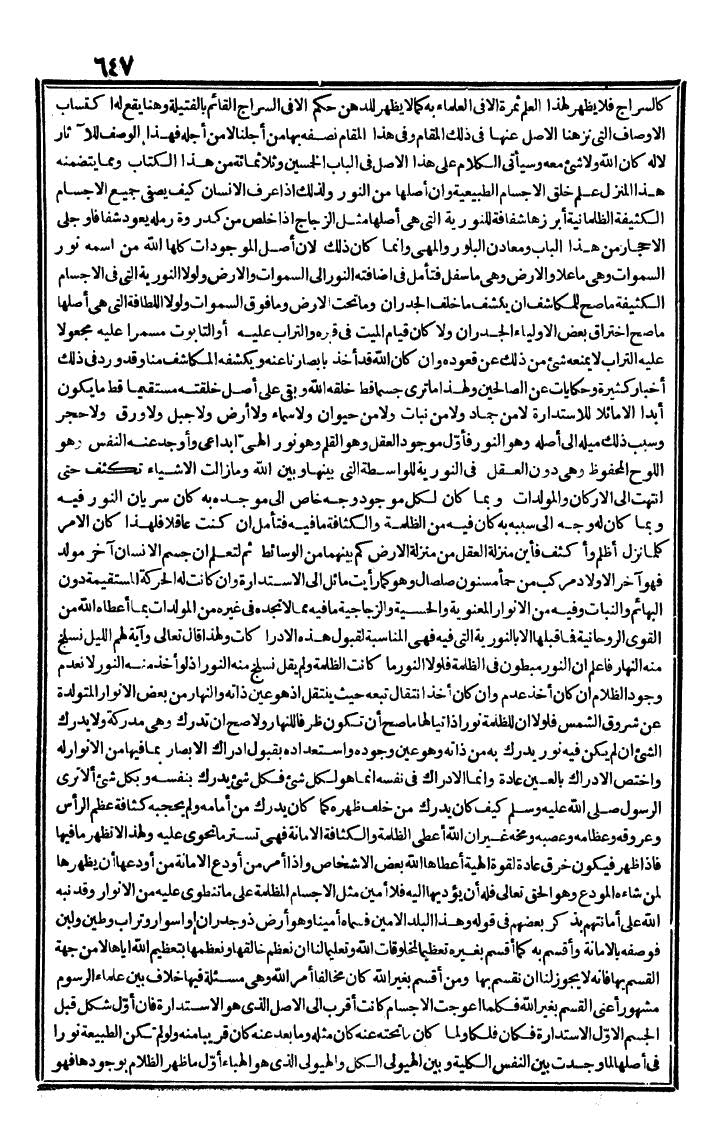 ٦٤٧
كالسراج فلا يظهر لهذا العلم ثمرة الا فى العلماء به كما لا يظهر للدهن حكم الا فى السراج القائم بالفتيلة وهنا يقع له اكتساب
الاوصاف التى نزهنا الاصل عنها فى ذلك المقام وفى هذا المقام نصفه بها من أجلنا لا من أجله فهذا الوصف للآثار
لا له كان الله ولا شئ معه وسيأتى الكلام على هذا الاصل فى الباب الخمسين وثلاثمائة من هذا الكتاب ومما يتضمنه
هذا المنزل علم خلق الاجسام الطبيعية وان أصلها من النور ولذلك اذا عرف الانسان كيف يصفى جميع الاجسام
الكثيفة الظلمانية أبرزها شفافة للنورية التى هى أصلها مثل الزجاج اذا خلص من كدروة رمله يعود شفافا وجلى
الاحجار من هذا الباب ومعادن البلور والمهى وانما كان ذلك لان أصل الموجودات كلها الله من اسمه نور
السموات وهى ما علا والارض وهى ما سفل فتأمل فى اضافته النور الى السموات والارض ولولا النورية التى فى الاجسام
الكثيفة ما صح للمكاشف ان يكشف ما خلف الجدران وما تحت الارض وما فوق السموات ولولا اللطافة التى هى أصلها
ما صح اختراق بعض الاولياء الجدران ولا كان قيام الميت فى قبره والتراب عليه أو التابوت مسمرا عليه مجعولا
عليه التراب لا يمنعه شئ من ذلك عن قعوده وان كان الله قد أخذ بابصارنا عنه ويكشفه المكاشف منا وقد ورد فى ذلك
أخبار كثيرة وحكايات عن الصالحين ولهذا ما ترى جسما قط خلقه الله وبقى على أصل خلقته مستقيما قط ما يكون
أبدا الا مائلا للاستدارة لا من جماد ولا من نبات ولا من حيوان ولا سماء ولا أرض ولا جبل ولا ورق ولا حجر
وسبب ذلك ميله الى أصله وهو النور فأول موجود العقل وهو القلم وهو نور الهىّ ابداعى وأوجد عنه النفس وهو
اللوح المحفوظ وهى دون العقل فى النورية للواسطة التى بينها وبين الله ومازالت الاشياء تكثف حتى
انتهت الى الاركان والمولدات وبما كان لكل موجود وجه خاص الى موجده به كان سريان النور فيه
وبما كان له وجه الى سببه به كان فيه من الظلمة والكثافة ما فيه فتأمل ان كنت عاقلا فلهذا كان الامر
كلما نزل أظلم وأكثف فأين منزلة العقل من منزلة الارض كم بينهما من الوسائط ثم لتعلم ان جسم الانسان آخر مولد
فهو آخر الاولاد مركب من حمأ مسنون صلصال وهو كما رأيت مائل الى الاستدارة وان كانت له الحركة المستقيمة دون
البهائم والنبات وفيه من الانوار المعنوية والحسية والزجاجية ما فيه مما لا تجده فى غيره من المولدات بما أعطاه الله من
القوى الروحانية فما قبلها الا بالنورية التى فيه فهى المناسبة لقبول هذه الادراكات ولهذا قال تعالى وآية لهم الليل نسلخ
منه النهار فاعلم ان النور مبطون فى الظلمة فلولا النور ما كانت الظلمة ولم يقل نسلخ منه النور اذ لو أخذ منه النور لانعدم
وجود الظلام ان كان أخذ عدم وان كان أخذ انتقال تبعه حيث ينتقل اذ هو عين ذاته والنهار من بعض الانوار المتولدة
عن شروق الشمس فلولا ان للظلمة نورا ذاتيا لها ما صح أن تكون ظرفا للنهار ولا صح ان تدرك وهى مدركة ولا يدرك
الشئ ان لم يكن فيه نور يدرك به من ذاته وهو عين وجوده واستعداده بقبول ادراك الابصار بما فيها من الانوار له
واختص الادراك بالعين عادة وانما الادراك فى نفسه انما هو لكل شئ فكل شئ يدرك بنفسه وبكل شئ ألا ترى
الرسول صلى الله عليه وسلم كيف كان يدرك من خلف ظهره كما كان يدرك من أمامه ولم يحجبه كثافة عظم الرأس
وعروقه وعظامه وعصبه ومخه غير ان الله أعطى الظلمة والكثافة الامانة فهى تستر ما تحوى عليه ولهذا لا تظهر ما فيها
فاذا ظهر فيكون خرق عادة لقوة الهية أعطاها الله بعض الاشخاص واذا أمر من أودع الامانة من أودعها أن يظهرها
لمن شاءه المودع وهو الحق تعالى فله أن يؤديها اليه فلا أمين مثل الاجسام المظلمة على ما تنطوى عليه من الانوار وقد نبه
الله على أمانتهم بذكر بعضهم فى قوله وهذا البلد الامين فسماه أمينا وهو أرض ذو جدران وأسوار وتراب وطين ولبن
فوصفه بالامانة وأقسم به كما أقسم بغيره تعظيما لمخلوقات الله وتعليما لنا ان نعظم خالقها ونعظمها بتعظيم الله اياها لا من جهة
القسم بها فانه لا يجوز لنا ان نقسم بها ومن أقسم بغير الله كان مخالفا أمر الله وهى مسئلة فيها خلاف بين علماء الرسوم
مشهور أعنى القسم بغير الله فكلما اعوجت الاجسام كانت أقرب الى الاصل الذى هو الاستدارة فان أوّل شكل قبل
الجسم الاوّل الاستدارة فكان فلكا ولما كان ما تحته عنه كان مثله وما بعد عنه كان قريبا منه ولو لم تكن الطبيعة نورا
فى أصلها لما وجدت بين النفس الكلية وبين الهيولى الكل والهيولى الذى هو الهباء أوّل ما ظهر الظلام بوجودها فهو